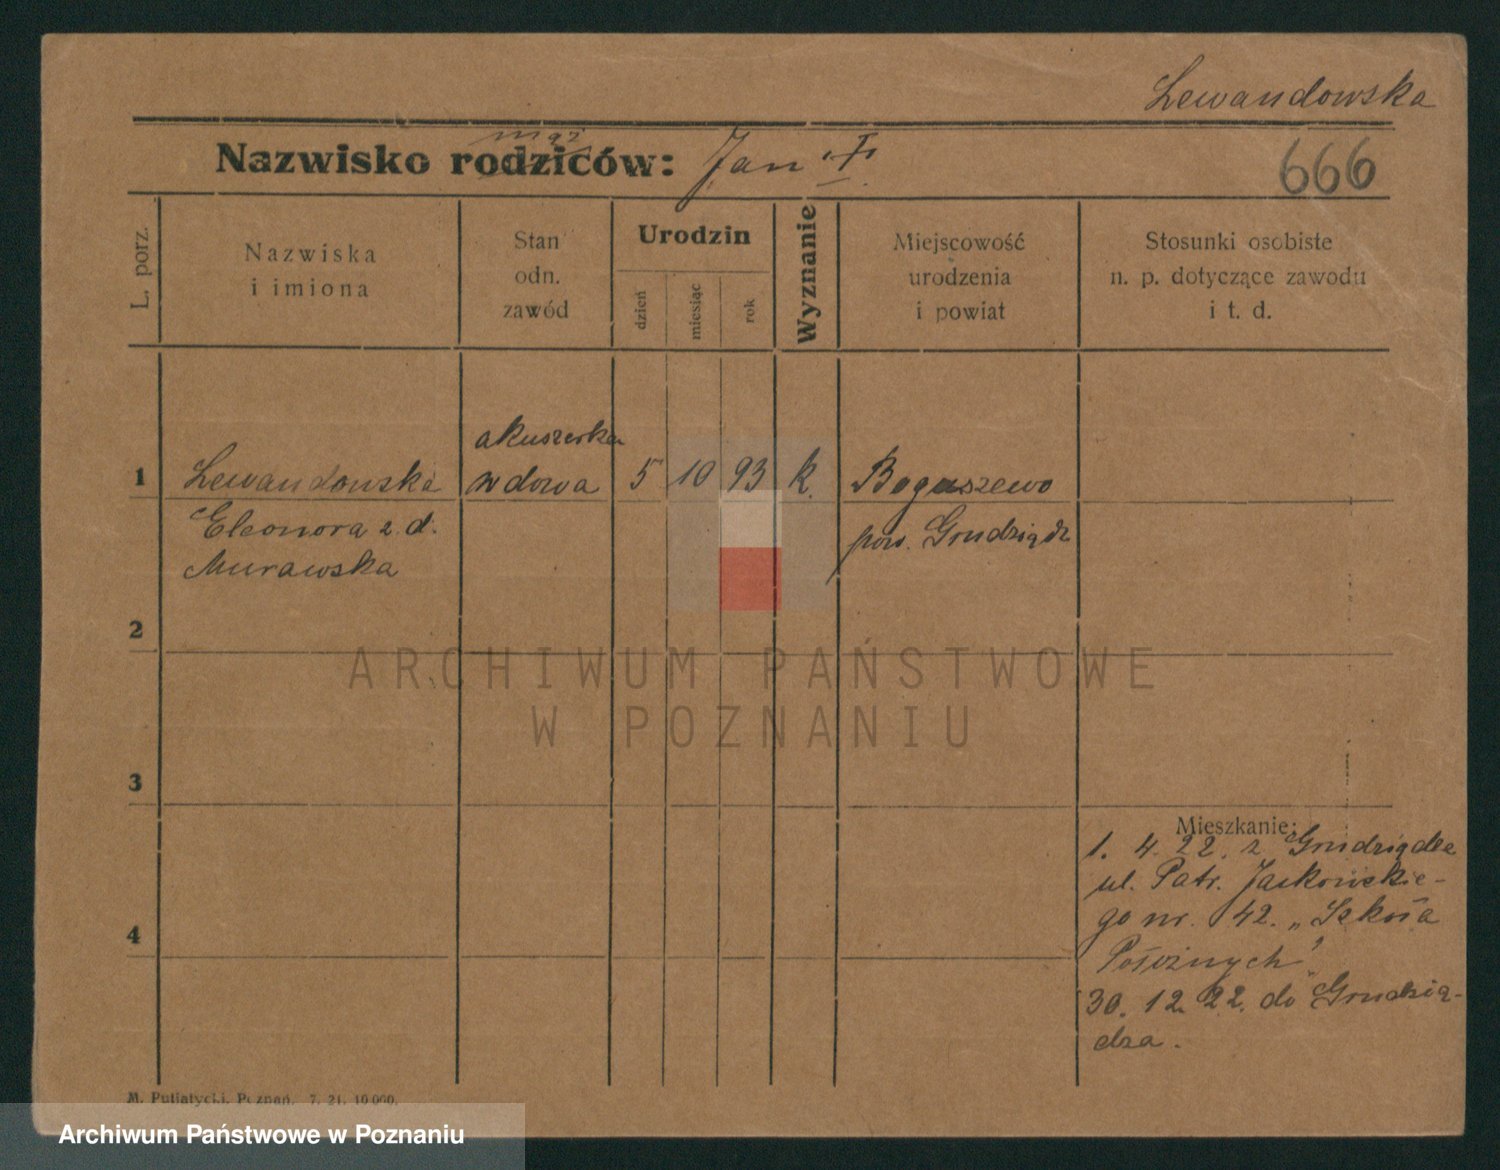 Lewandowska
mąż
Nazwisko rodziców: Jan "†"
666
L. porz.
Nazwiska
i imiona
Stan
odn.
zawód
Urodzin
dzień
miesiąc
rok
Wyznanie
Miejscowość
urodzenia
i powiat
Stosunki osobiste
n. p. dotyczące zawodu
i t. d.
akuszerka
1 Lewandowska wdowa 5 10 93 k. Boguszewo
Eleonora z d. pow. Grudziądz
Murawska
2
ARCHIWUM PAŃSTWOWE
W POZNANIU
3
Mieszkanie:
1. 4. 22. z Grudziądza
ul. Patr. Jackowskie-
go nr. 42. „Szkoła
4
Położnych"
30. 12. 22. do Grudzią-
dza.
M. Putiatycki, Poznań. 7. 21. 10 000.
Archiwum Państwowe w Poznaniu